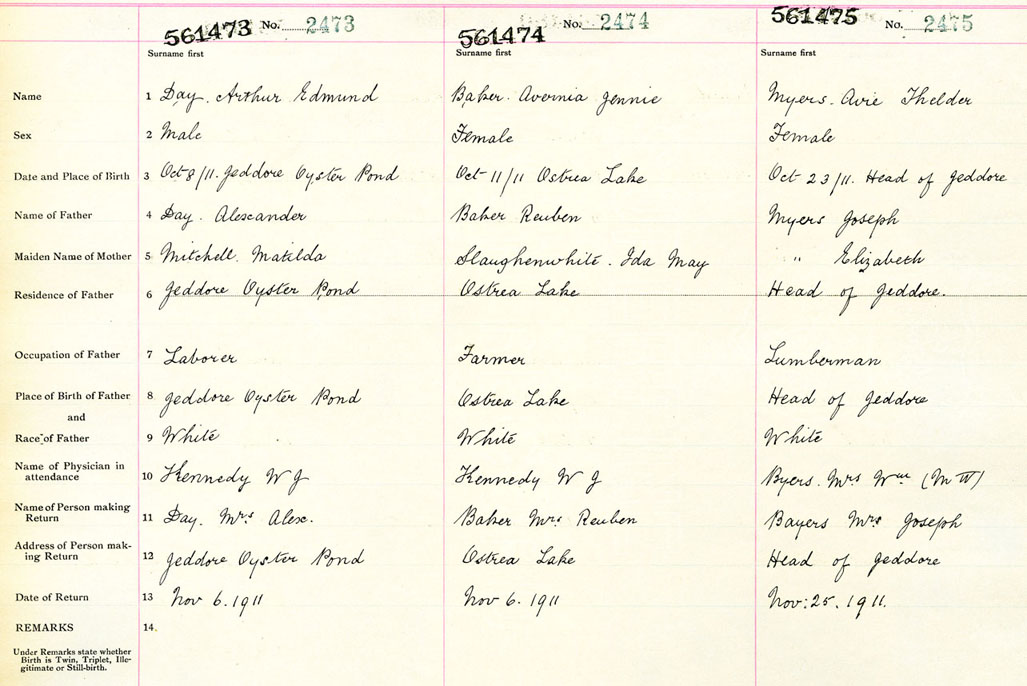 561473 No. 2473 561474 No. 2474 561475 No. 2475
Surname first Surname first Surname first
Name 1 Day. Arthur Edmund Baker. Avernia Jennie Myers. Avie Thelder
Sex 2 Male Female Female
Date and Place of Birth 3 Oct 8/11. Jeddore Oyster Pond Oct 11/11 Ostrea Lake Oct 23/11. Head of Jeddore
Name of Father 4 Day. Alexander Baker Reuben Myers Joseph
Maiden Name of Mother 5 Mitchell. Matilda Slaughenwhite. Ida May " Elizabeth
Residence of Father 6 Jeddore Oyster Pond Ostrea Lake Head of Jeddore.
Occupation of Father 7 Laborer Farmer Lumberman
Place of Birth of Father 8 Jeddore Oyster Pond Ostrea Lake Head of Jeddore
and
Race of Father 9 White White White
Name of Physician in
attendance 10 Kennedy W J Kennedy W J Byers. Mrs Wm (M W)
Name of Person making
Return 11 Day. Mrs Alex. Baker Mrs Reuben Bayers Mrs Joseph
Address of Person mak-
ing Return 12 Jeddore Oyster Pond Ostrea Lake Head of Jeddore
Date of Return 13 Nov 6. 1911 Nov 6. 1911 Nov: 25. 1911.
REMARKS 14.
Under Remarks state whether
Birth is Twin, Triplet, Ille-
gitimate or Still-birth.